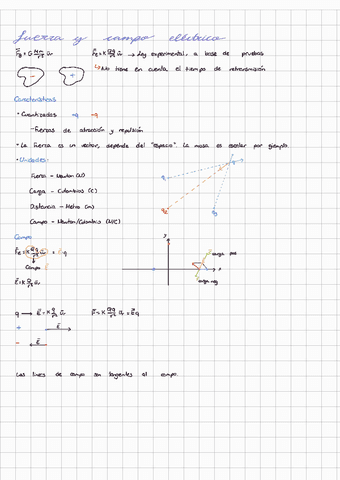 fuerza y campo eléctrico
F_g = G M·m/r² ûr    F_e = K Q·q/r² ûr → Ley experimental, a base de pruebas
↳ No tiene en cuenta el tiempo de retransmisión
-    +
Características
• Cuantizadas
- Fuerzas de atracción y repulsión
• La fuerza es un vector, depende del "espacio". La masa es escalar por ejemplo
• Unidades:
Fuerza - Newton (N)
Carga - Culombios (C)
Distancia - Metro (m)
Campo - Newton/Culombio (N/C)
q1
q2
q3
Campo
y
x
Campo
carga pos
carga neg
E = K q/r² ûr
q → E = K q/r² ûr    F = K Qq/r² ûr = E q
+    E
-    E
Las líneas de campo son tangentes al campo.